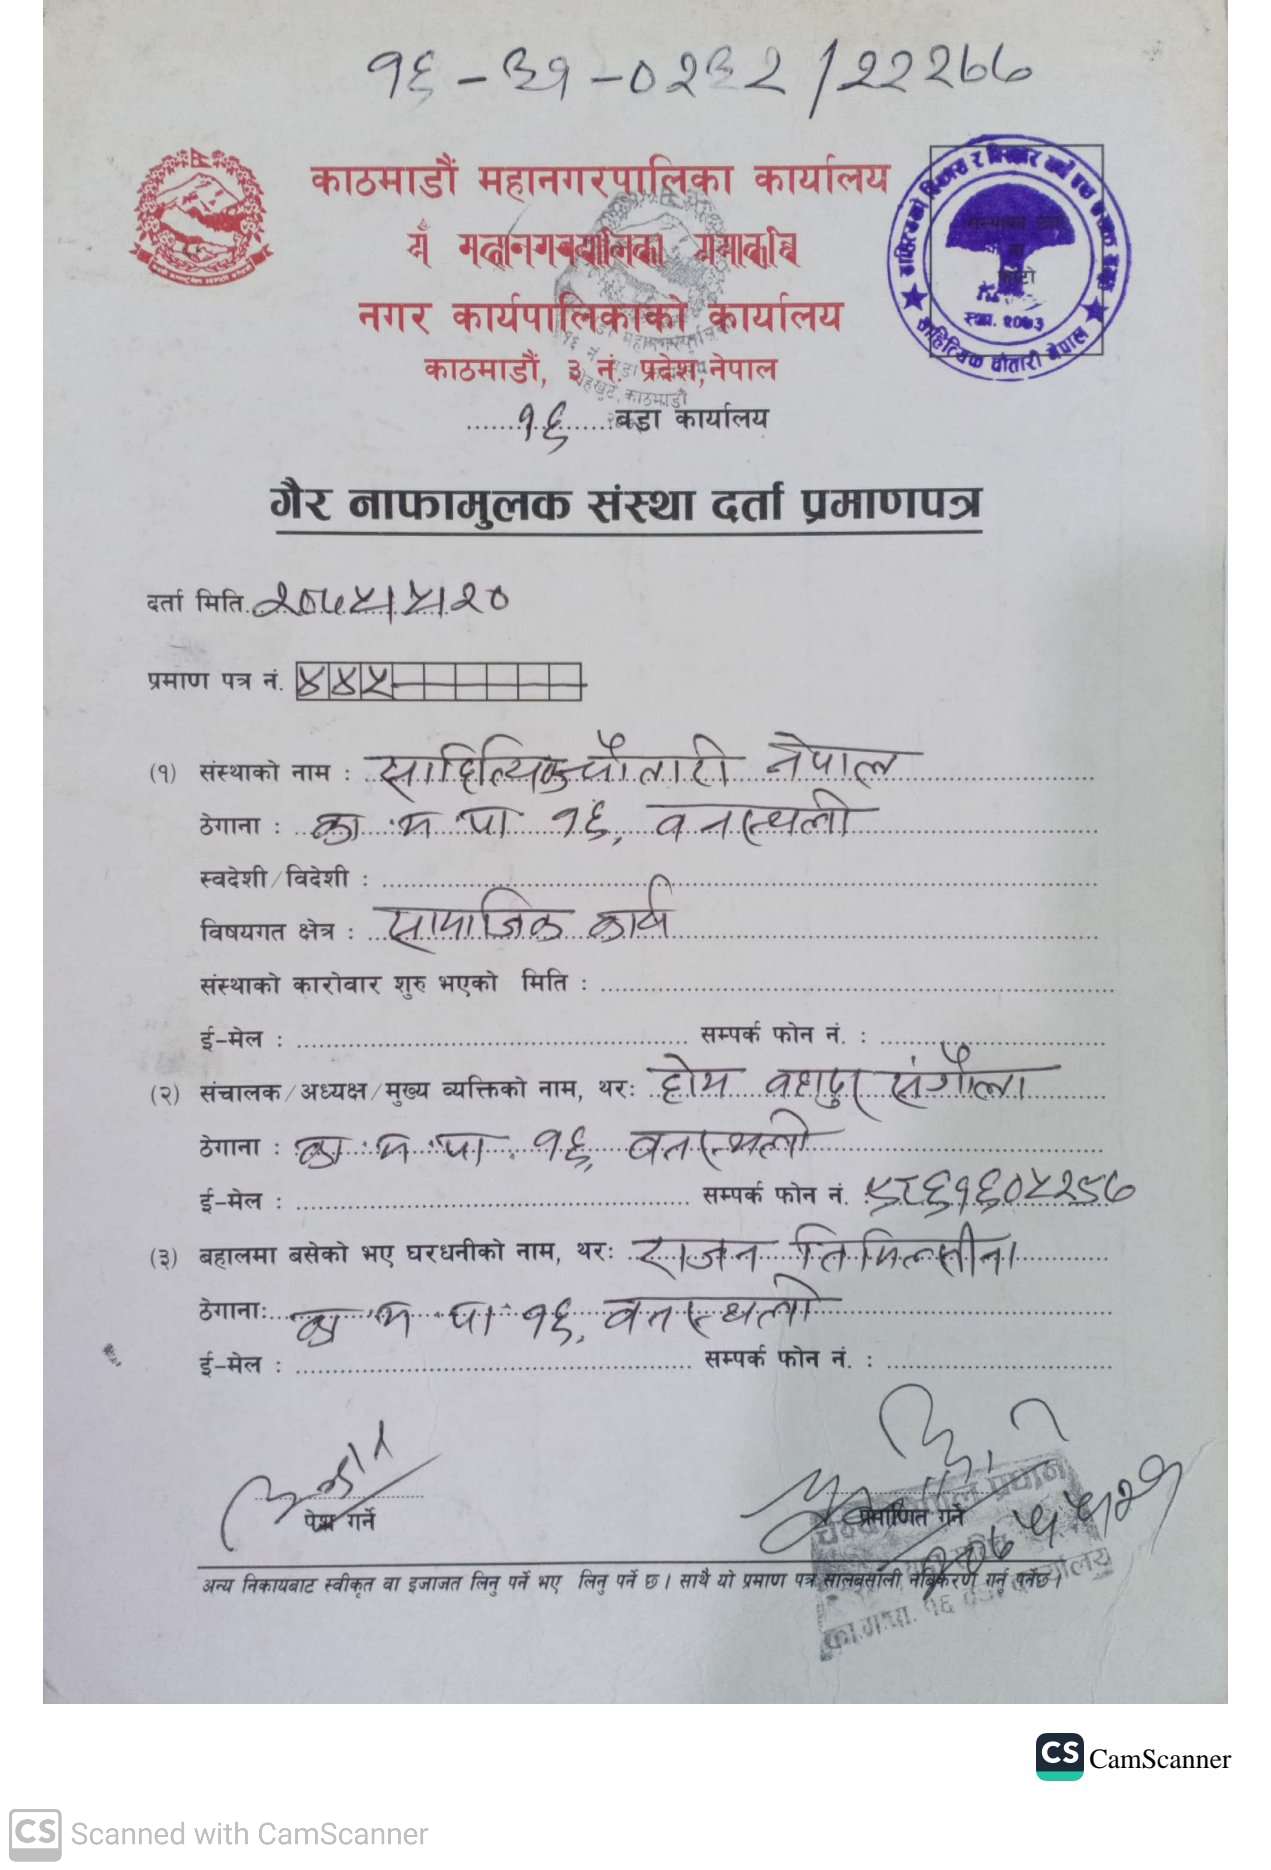 १६-३१-०२३२/२२२७७
काठमाडौं महानगरपालिका कार्यालय
नगर कार्यपालिकाको कार्यालय
काठमाडौं, ३ नं. प्रदेश, नेपाल
१६ वडा कार्यालय
साहित्यिक चौतारी नेपाल
स्था. २०७३
गैर नाफामुलक संस्था दर्ता प्रमाणपत्र
दर्ता मिति २०७५।५।२०
प्रमाण पत्र नं. ४४५
(१) संस्थाको नाम : साहित्यिक चौतारी नेपाल
ठेगाना : का म पा १६, वनस्थली
स्वदेशी/विदेशी :
विषयगत क्षेत्र : सामाजिक कार्य
संस्थाको कारोवार शुरु भएको मिति :
ई-मेल : सम्पर्क फोन नं. :
(२) संचालक/अध्यक्ष/मुख्य व्यक्तिको नाम, थरः होम बहादुर संगौला
ठेगाना : का म पा १६, वनस्थली
ई-मेल : सम्पर्क फोन नं. ९८६१६०५२९७
(३) बहालमा बसेको भए घरधनीको नाम, थरः राजन तिमिल्सीना
ठेगानाः का म पा १६, वनस्थली
ई-मेल : सम्पर्क फोन नं. :
पेश गर्ने प्रमाणित गर्ने
अन्य निकायबाट स्वीकृत वा इजाजत लिनु पर्ने भए लिनु पर्ने छ। साथै यो प्रमाण पत्र सालबसाली नविकरण गर्नु पर्नेछ।
का.म.पा. १६ वडा कार्यालय
CS CamScanner
CS Scanned with CamScanner